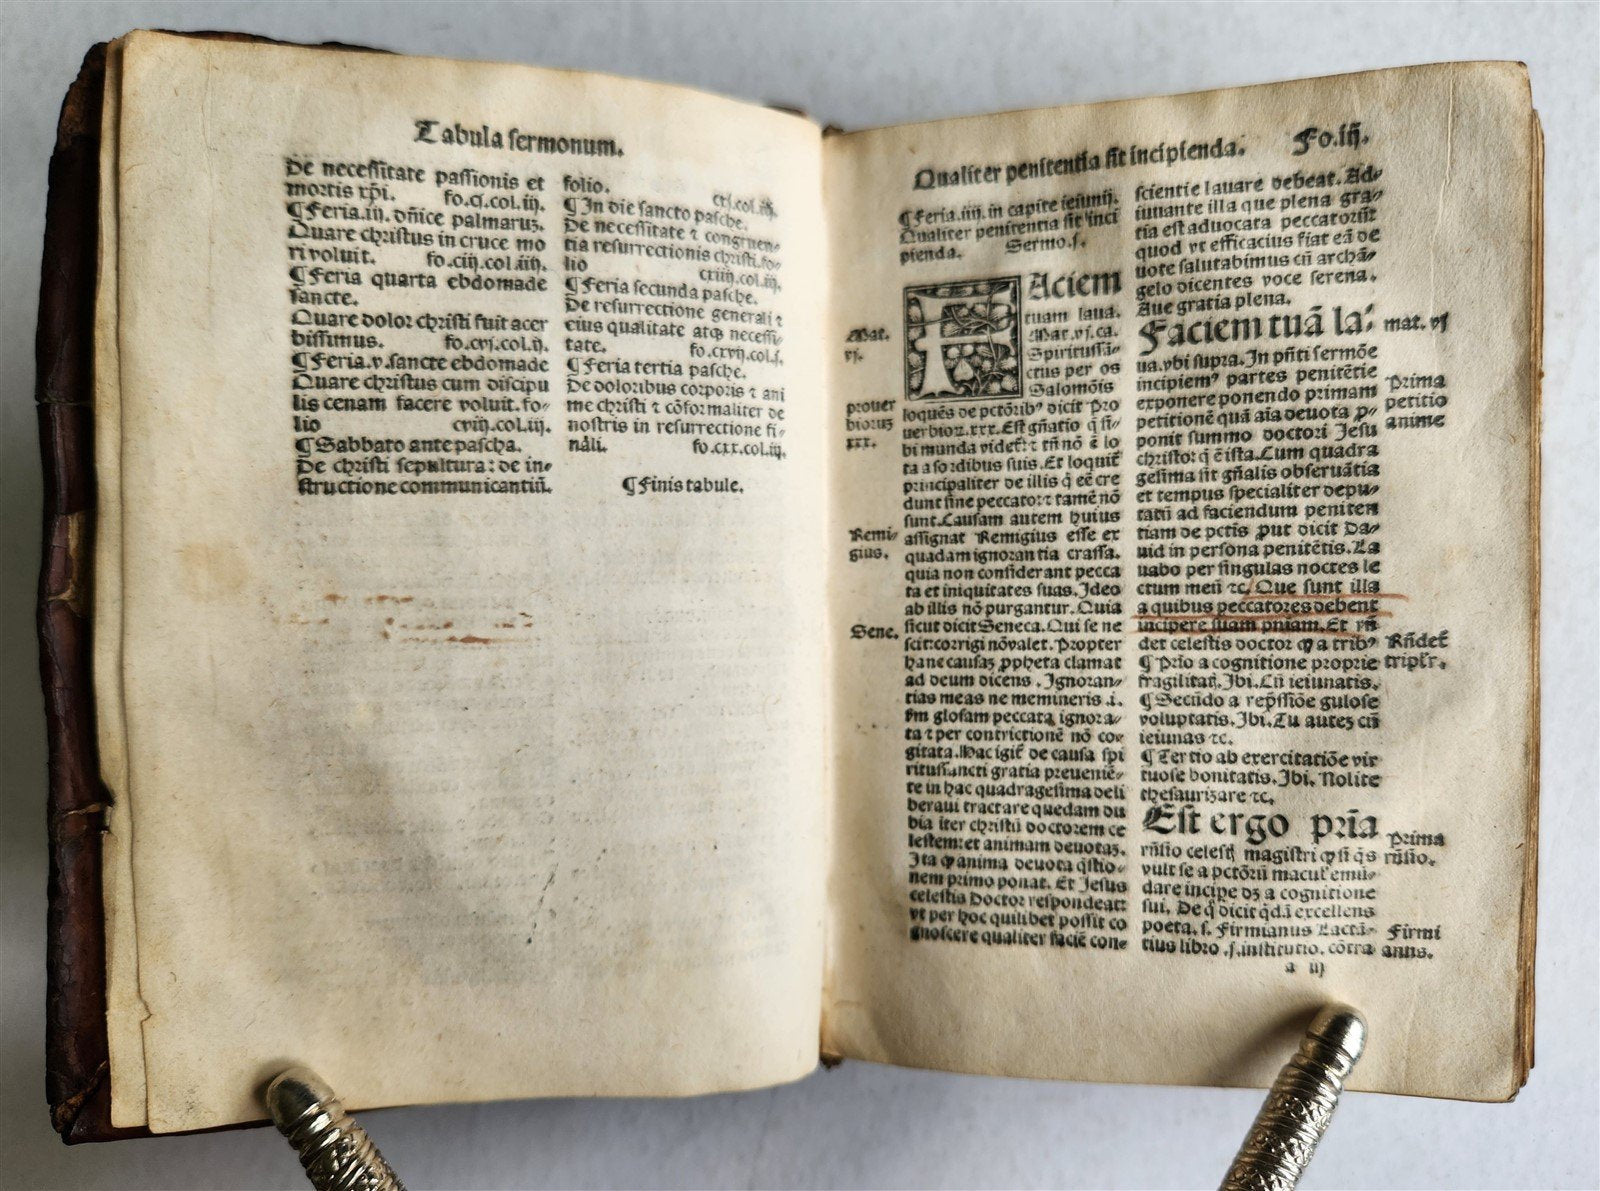 Tabula sermonum.
De necessitate passionis et
mortis xp̄i. fo.cj.col.iij.
¶ Feria.iij. dn̄ice palmaruꝫ.
Quare christus in cruce mo
ri voluit. fo.ciij.col.iiij.
¶ Feria quarta ebdomade
sancte.
Quare dolor christi fuit acer
bissimus. fo.cvj.col.ij.
¶ Feria.v.sancte ebdomade
Quare christus cum discipu
lis cenam facere voluit. fo-
lio cviij.col.iij.
¶ Sabbato ante pascha.
De christi sepultura: de in-
structione communicantiū.
folio. cxj.col.iiij.
¶ In die sancto pasche.
De necessitate ⁊ congruen-
tia resurrectionis christi.fo-
lio cxiiij.col.iij.
¶ Feria secunda pasche.
De resurrectione generali ⁊
eius qualitate atqꝫ necessi-
tate. fo.cxvij.col.j.
¶ Feria tertia pasche.
De doloribus corporis ⁊ ani
me christi ⁊ cōformaliter de
nostris in resurrectione fi-
nali. fo.cxx.col.iij.
¶ Finis tabule.
Qualiter penitentia sit incipienda. Fo.iij.
¶ Feria.iiij. in capite ieiunij.
Qualiter penitentia sit inci
pienda. Sermo.j.
FAciem
tuam laua.
Mat.vj.ca.
Spiritussā-
ctus per os
Salomōis
loquēs de pctōribꝰ dicit Pro
uerbioꝝ.xxx. Est gn̄atio q̄ si-
bi munda videt̄: ⁊ tn̄ nō ē lo
ta a sordibus suis. Et loquit̄
principaliter de illis q̄ eē cre
dunt sine peccato: ⁊ tamē nō
sunt. Causam autem huius
assignat Remigius esse ex
quadam ignorantia crassa.
quia non considerant pecca
ta et iniquitates suas. Ideo
ab illis nō purgantur. Quia
sicut dicit Seneca. Qui se ne
scit: corrigi nō valet. Propter
hanc causaꝫ ꝓpheta clamat
ad deum dicens. Ignoran-
tias meas ne memineris .i.
fm glosam peccata ignora-
ta ⁊ per contrictionē nō co-
gitata. Hac igit̄ de causa spi
ritussancti gratia preueniē-
te in hac quadragesima deli
beraui tractare quedam du
bia iter christū doctorem ce
lestem: et animam deuotaꝫ.
Ita ꝙ anima deuota q̄stio-
nem primo ponat. Et Jesus
celestis Doctor respondeat:
vt per hoc quilibet possit co
gnoscere qualiter faciē con-
Mat.
vj.
prouer
bioruꝫ
xxx.
Remi-
gius.
Sene.
scientie lauare debeat. Ad-
iuuante illa que plena gra-
tia est aduocata peccatorū:
quod vt efficacius fiat eā de
uote salutabimus cū archā-
gelo dicentes voce serena.
Aue gratia plena.
Faciem tuā la-
ua. vbi supra. In pn̄ti sermōe
incipiemꝰ partes penitētie
exponere ponendo primam
petitionē quā aīa deuota ꝓ-
ponit summo doctori Jesu
christo: q̄ ē ista. Cum quadra
gesima sit gn̄alis obseruātia
et tempus specialiter depu-
tatū ad faciendum peniten
tiam de pctīs ꝓut dicit Da-
uid in persona penitētis. La
uabo per singulas noctes le
ctum meū ⁊c. Que sunt illa
a quibus peccatores debent
incipere suam pniam. Et rn̄
det celestis doctor ꝙ a tribꝰ
¶ Prīo a cognitione proprie
fragilitatꝭ. Ibi. Cū ieiunatis.
¶ Secūdo a rep̄ssiōe gulose
voluptatis. Ibi. Tu auteꝫ cū
ieiunas ⁊c.
¶ Tertio ab exercitatiōe vir
tuose bonitatis. Ibi. Nolite
thesaurizare ⁊c.
Est ergo prīa
rn̄sio celestꝭ magistri ꝙ si q̄s
vult se a pctōrū macul̄ emū-
dare incipe dꝫ a cognitione
sui. De q̄ dicit q̄dā excellens
poeta. s. Firmianus Lactā-
tius libro .j. institutio. cōtra
mat. vj
Prima
petitio
anime
Rn̄det̄
triplr̄.
Prima
rn̄sio.
Firmi
anus.
a iij